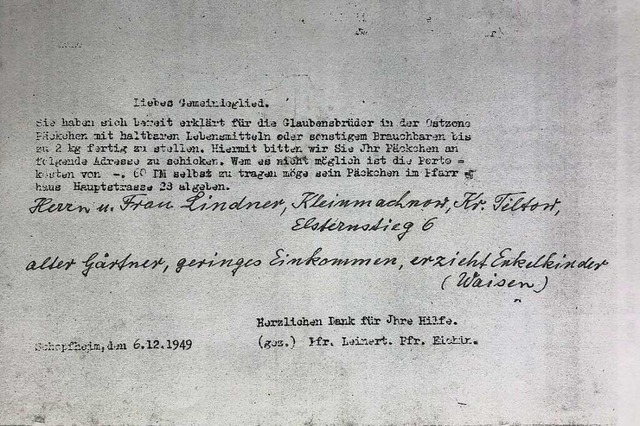 Liebes Gemeindeglied.
Sie haben sich bereit erklärt für die Glaubensbrüder in der Ostzone
Päckchen mit haltbaren Lebensmitteln oder sonstigem Brauchbaren bis
zu 2 kg fertig zu stellen. Hiermit bitten wir Sie Jhr Päckchen an
folgende Adresse zu schicken. Wem es nicht möglich ist die Porto =
kosten von -. 60 DM selbst zu tragen möge sein Päckchen im Pfarr
haus Hauptstrasse 28 abgeben.
Herrn u. Frau Lindner, Kleinmachnow, Kr. Teltow,
Elsternstieg 6
alter Gärtner, geringes Einkommen, erzieht Enkelkinder
(Waisen)
Herzlichen Dank für Jhre Hilfe.
Schopfheim, den 6.12.1949
(gez.) Pfr. Leinert. Pfr.